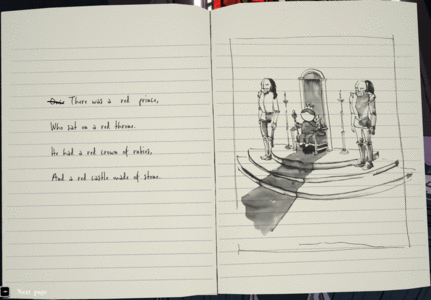 There was a red prince,
Who sat on a red throne.
He had a red crown of rubies,
And a red castle made of stone.
Next page